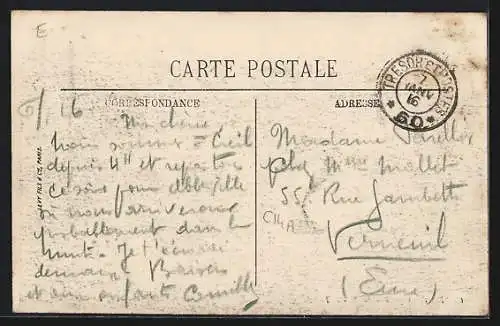 E
CARTE POSTALE
TRESOR ET POSTES
7
JANV
16
* 60 *
CORRESPONDANCE
ADRESSE
6/1 16
Ma chérie
Nous sommes à Creil
depuis 4h et repartons
ce soir pour Abbeville
où nous arriverons
probablement dans la
nuit. Je t'écrirai
demain Baisers
et aux enfants Camille
LEVY FILS & CIE, PARIS
Madame
chez Mme Mallet
55 Rue Gambetta
C114A
Verneuil
(Eure)